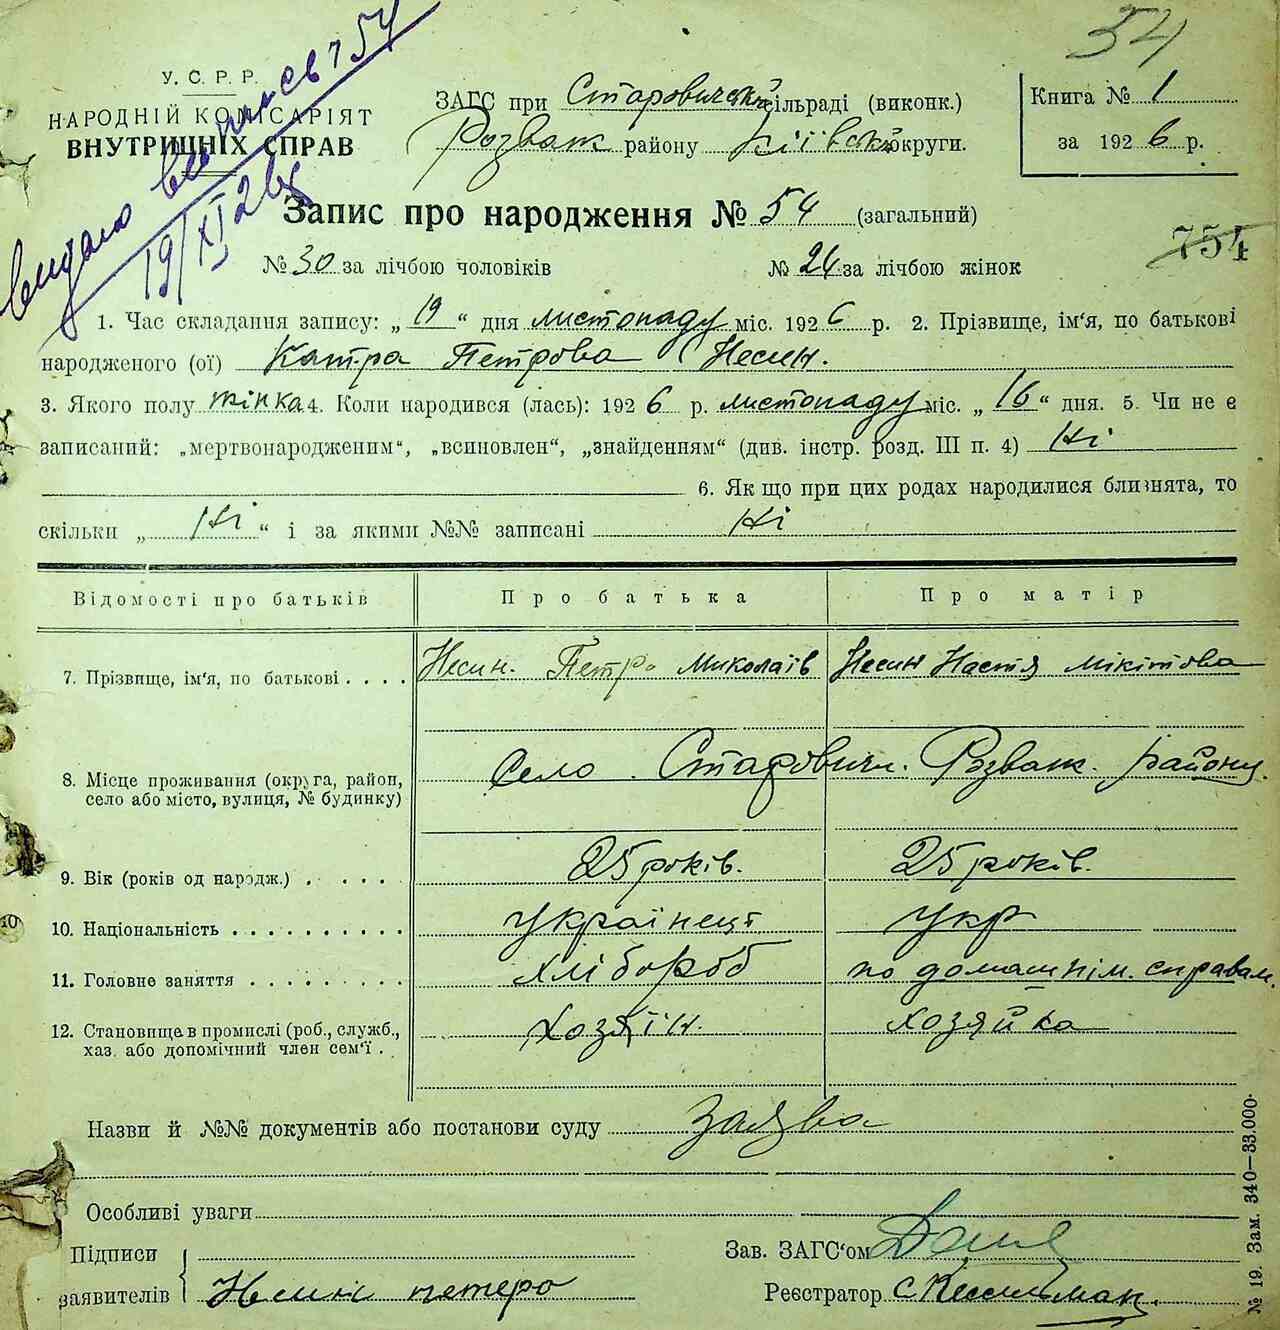 54
У. С. Р. Р.
НАРОДНІЙ КОМІСАРІЯТ
ВНУТРИШНІХ СПРАВ
видано випись 754
19/XI 26
ЗАГС при Старовичській сільраді (виконк.)
Розваж району Київськ округи.
Книга № 1
за 1926 р.
Запис про народження № 54 (загальний)
754
№ 30 за лічбою чоловіків № 24 за лічбою жінок
1. Час складання запису: „19“ дня листопаду міс. 1926 р. 2. Прізвище, ім'я, по батькові
народженого (ої) Катра Петрова Несин.
3. Якого полу жінка. 4. Коли народився (лась): 1926 р. листопаду міс. „16“ дня. 5. Чи не є
записаний: „мертвонародженим“, „всиновлен“, „знайденням“ (див. інстр. розд. III п. 4) Ні
6. Як що при цих родах народилися близнята, то
скільки „Ні“ і за якими №№ записані Ні
Відомості про батьків Про батька Про матір
7. Прізвище, ім'я, по батькові . . . . Несин. Петро Миколаїв Несин Настя Мікітова
8. Місце проживання (округа, район,
село або місто, вулиця, № будинку) Село Старовичи. Розваж. району.
9. Вік (років од народж.) . . . . . 25 років. 25 років.
10. Національність . . . . . . . . . . українець укр
11. Головне заняття . . . . . . . . . хлібороб по домашнім. справам.
12. Становище в промислі (роб., служб.,
хаз. або допомічний член сем'ї . хозяїн. хозяйка
Назви й №№ документів або постанови суду заява
Особливі уваги
Підписи
заявителів Несин петро
Зав. ЗАГС'ом
Реєстратор
№ 19. Зам. 340—33.000.
10